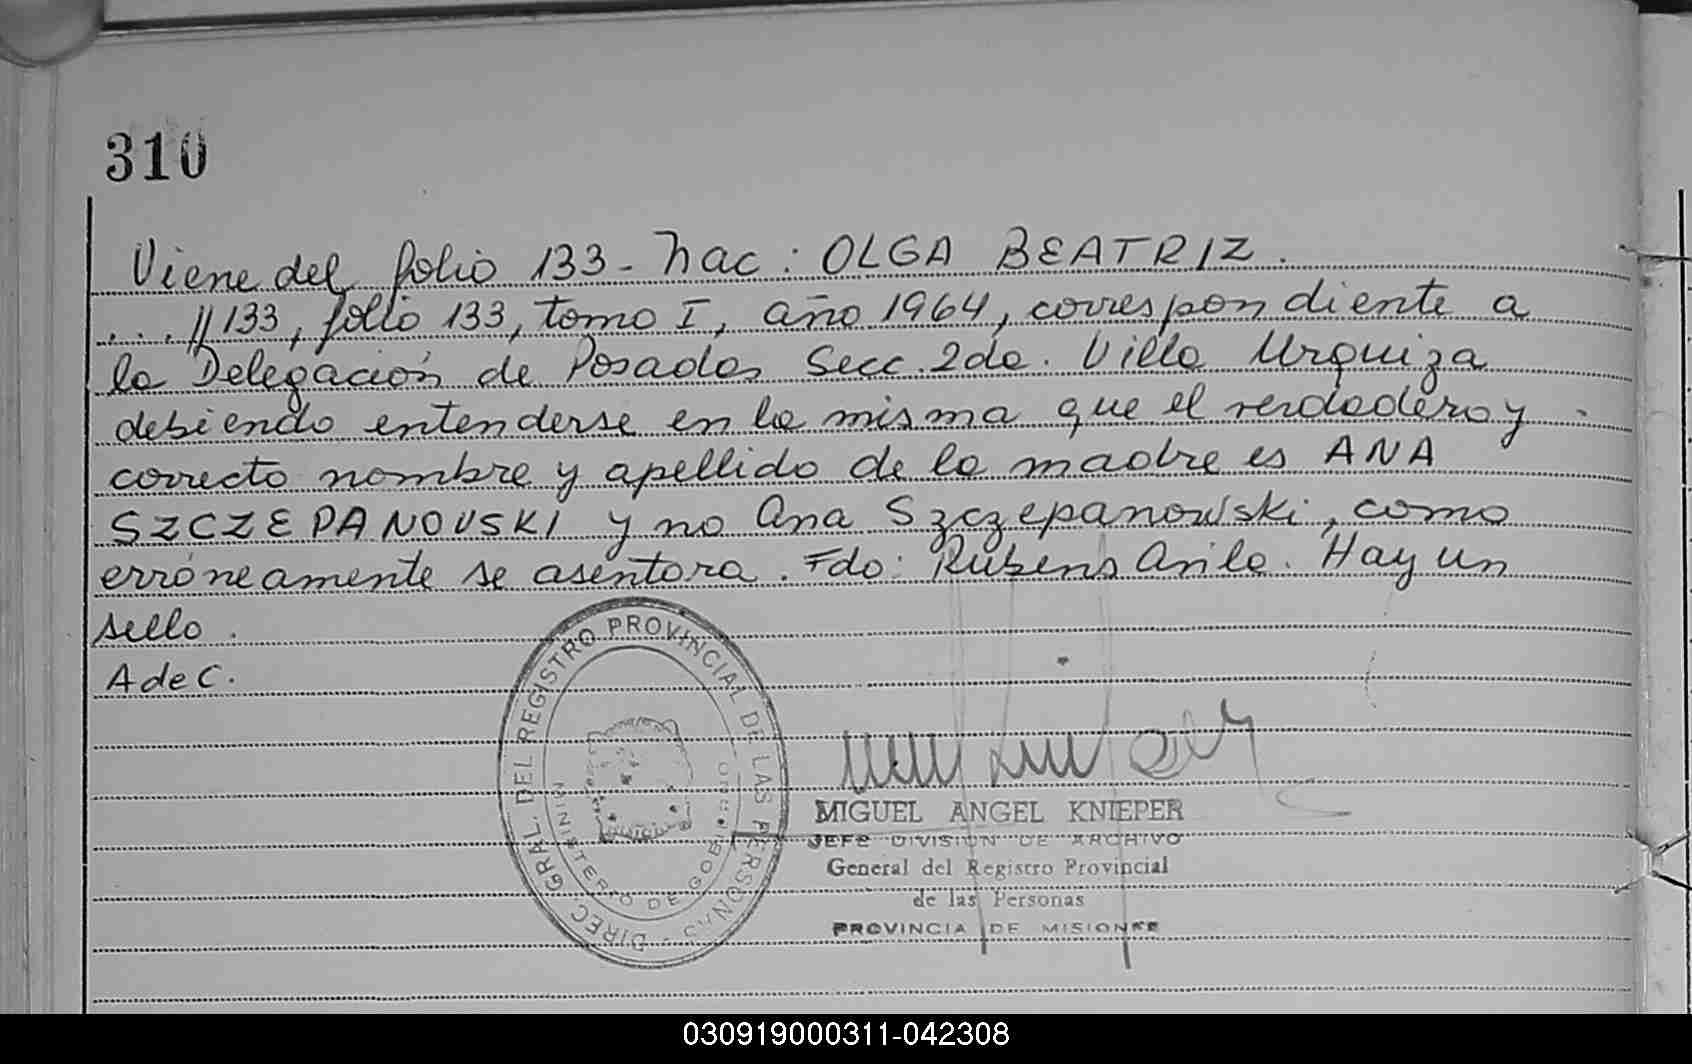 310
Viene del folio 133 - Nac : OLGA BEATRIZ.
...//133, folio 133, tomo I, año 1964, correspondiente a
la Delegación de Posadas Secc. 2da. Villa Urquiza
debiendo entenderse en la misma que el verdadero y
correcto nombre y apellido de la madre es ANA
SZCZEPANOVSKI y no Ana Szczepanowski, como
erróneamente se asentora. Fdo: Rubens Avila. Hay un
sello.
A de C.
DIREC. GRAL. DEL REGISTRO PROVINCIAL DE LAS PERSONAS
MINISTERIO DE GOBIERNO
MIGUEL ANGEL KNIEPER
JEFE DIVISION DE ARCHIVO
General del Registro Provincial
de las Personas
PROVINCIA DE MISIONES
030919000311-042308